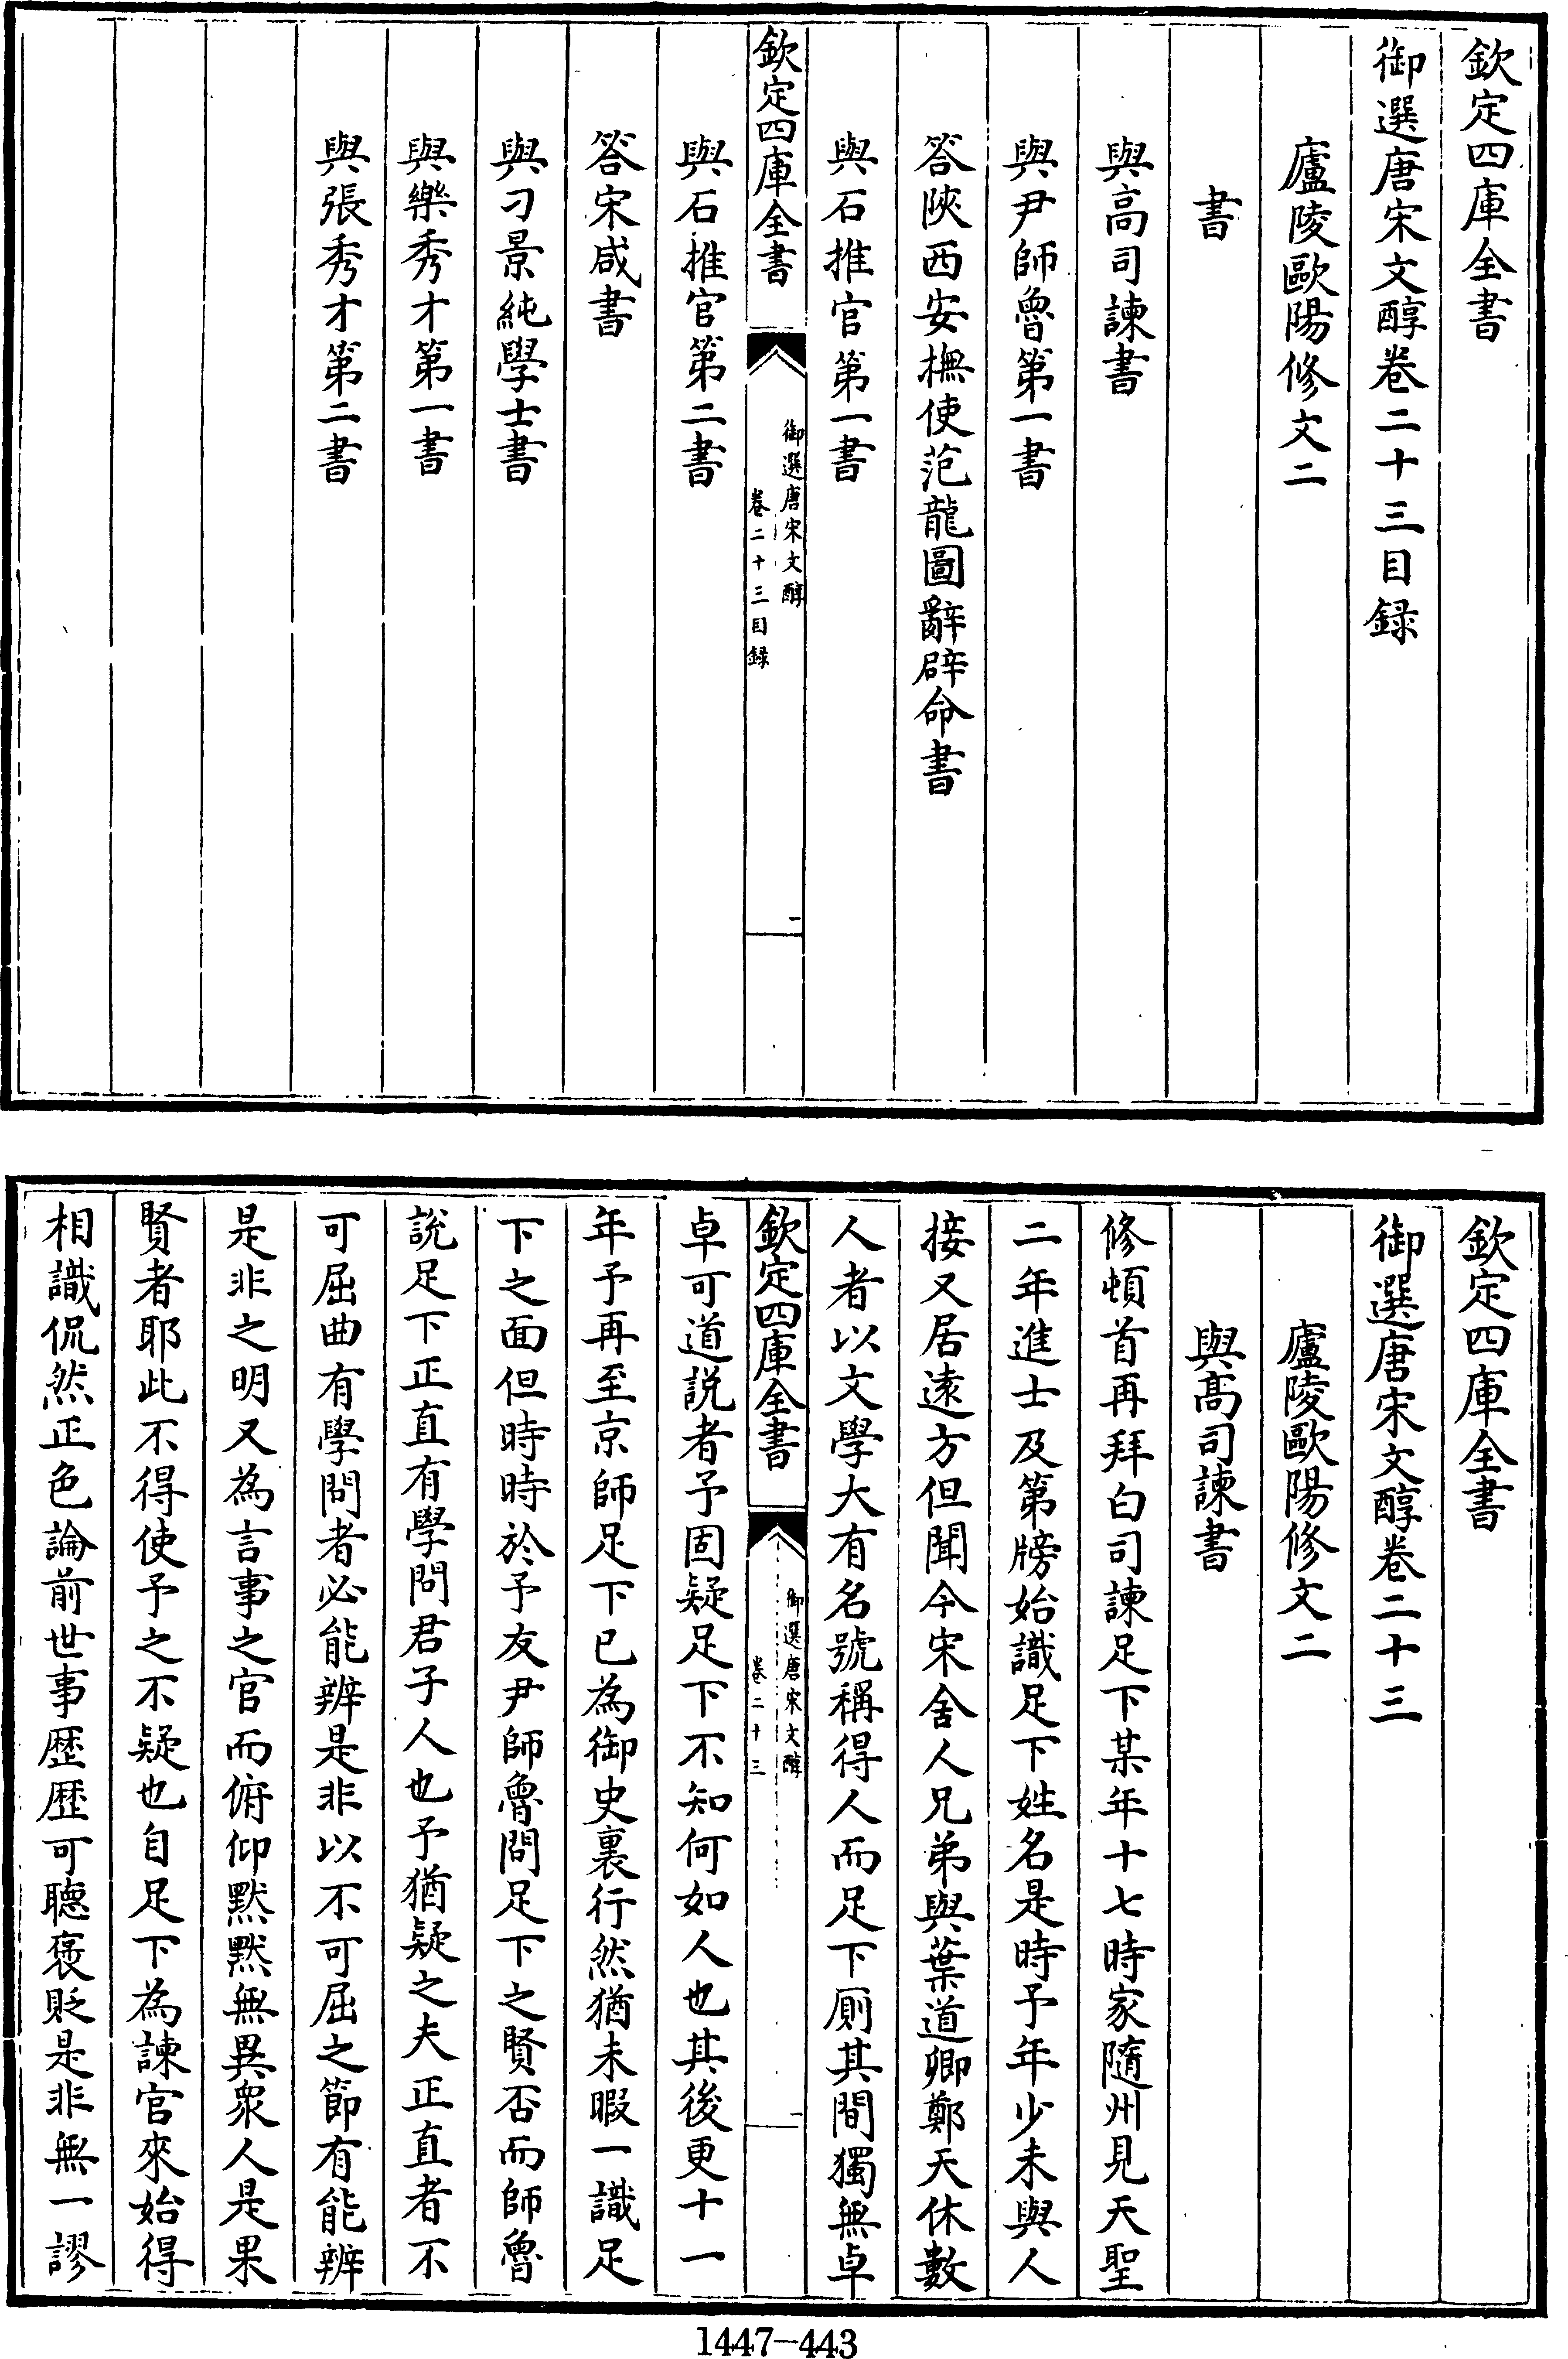 欽定四庫全書
御選唐宋文醇卷二十三目録
廬陵歐陽修文二
書
與高司諫書
與尹師魯第一書
答陝西安撫使范龍圖辭辟命書
與石推官第一書
欽定四庫全書
御選唐宋文醇
卷二十三目録
一
與石推官第二書
答宋咸書
與刁景純學士書
與樂秀才第一書
與張秀才第二書
欽定四庫全書
御選唐宋文醇卷二十三
廬陵歐陽修文二
與髙司諫書
修頓首再拜白司諫足下某年十七時家隨州見天聖
二年進士及第牓始識足下姓名是時予年少未與人
接又居逺方但聞今宋舍人兄弟與葉道卿鄭天休數
人者以文學大有名號稱得人而足下厠其間獨無卓
欽定四庫全書
御選唐宋文醇
卷二十三
一
卓可道説者予固疑足下不知何如人也其後更十一
年予再至京師足下已為御史裏行然猶未暇一識足
下之面但時時於予友尹師魯問足下之賢否而師魯
説足下正直有學問君子人也予猶疑之夫正直者不
可屈曲有學問者必能辨是非以不可屈之節有能辨
是非之明又為言事之官而俯仰黙黙無異衆人是果
賢者耶此不得使予之不疑也自足下為諫官來始得
相識侃然正色論前世事歴歴可聴褒貶是非無一謬
1447-443